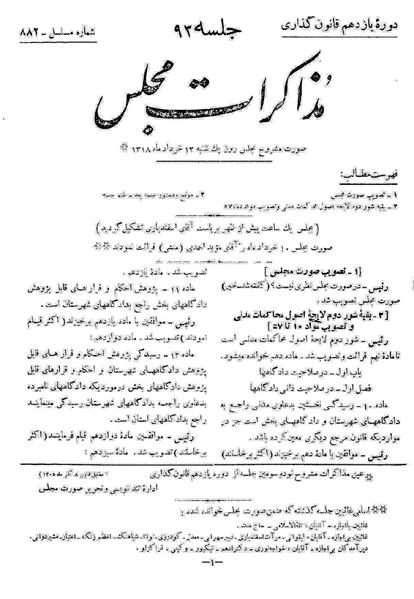 دورهٔ یازدهم قانون گذاری
جلسه ۹۳
شماره مسلسل - ۸۸۲
مذاکرات مجلس
صورت مشروح مجلس روز یک شنبه ۱۳ خرداد ماه ۱۳۱۸
فهرست مطالب:
۱ - تصویب صورت مجلس
۲ - بقیه شور دوم لایحه اصول محاکمات مدنی و تصویب مواد ده تا ۵۷
۳ - موقع و دستور جلسه بعد - ختم جلسه
(مجلس یک ساعت پیش از ظهر بریاست آقای اسفندیاری تشکیل گردید)
صورت مجلس ۱۰ خرداد ماه را آقای مؤید احمدی (منشی) قرائت نمودند
[۱ - تصویب صورت مجلس]
رئیس - در صورت مجلس نظری نیست؟ (گفته شد - خیر)
صورت مجلس تصویب شد.
[۲ - بقیهٔ شور دوم لایحهٔ اصول محاکمات مدنی
و تصویب مواد ۱۰ تا ۵۷]
رئیس - شور دوم لایحه اصول محاکمات مدنی است
تا مادهٔ نهم قرائت و تصویب شد. ماده دهم خوانده میشود.
باب اول - در صلاحیت دادگاهها
فصل اول - در صلاحیت ذاتی دادگاهها
ماده ۱۰ - رسیدگی نخستین بدعاوی مدنی راجع به
دادگاههای شهرستان و دادگاههای بخش است جز در
مواردیکه قانون مرجع دیگری معین کرده باشد.
رئیس - موافقین با مادهٔ دهم برخیزند (اکثر برخاستند)
تصویب شد. مادهٔ یازدهم.
ماده ۱۱ - پژوهش احکام و قرارهای قابل پژوهش
دادگاههای بخش راجع بدادگاههای شهرستان است.
رئیس - موافقین با ماده یازدهم برخیزند (اکثر قیام
نمودند) تصویب شد. مادهٔ دوازدهم.
ماده ۱۲ - رسیدگی پژوهش احکام و قرارهای قابل
پژوهش دادگاههای شهرستان و احکام و قرارهای قابل
پژوهش دادگاههای بخش در موردیکه دادگاههای نامبرده
بدعاوی راجع بدادگاههای شهرستان رسیدگی مینمایند
راجع بدادگاههای استان است.
رئیس - موافقین مادهٔ دوازدهم قیام فرمایند (اکثر
برخاستند) تصویب شد. مادهٔ سیزدهم:
عین مذاکرات مشروح نود و سومین جلسه از دوره یازدهم قانون گذاری
اداره تند نویسی و تحریر صورت مجلس
اسامی غائبین جلسه گذشته که ضمن صورت مجلس خوانده شده:
غائبین با اجازه - آقایان:
غائبین بی اجازه - آقایان:
دیر آمدگان بی اجازه - آقایان:
- ۱ -